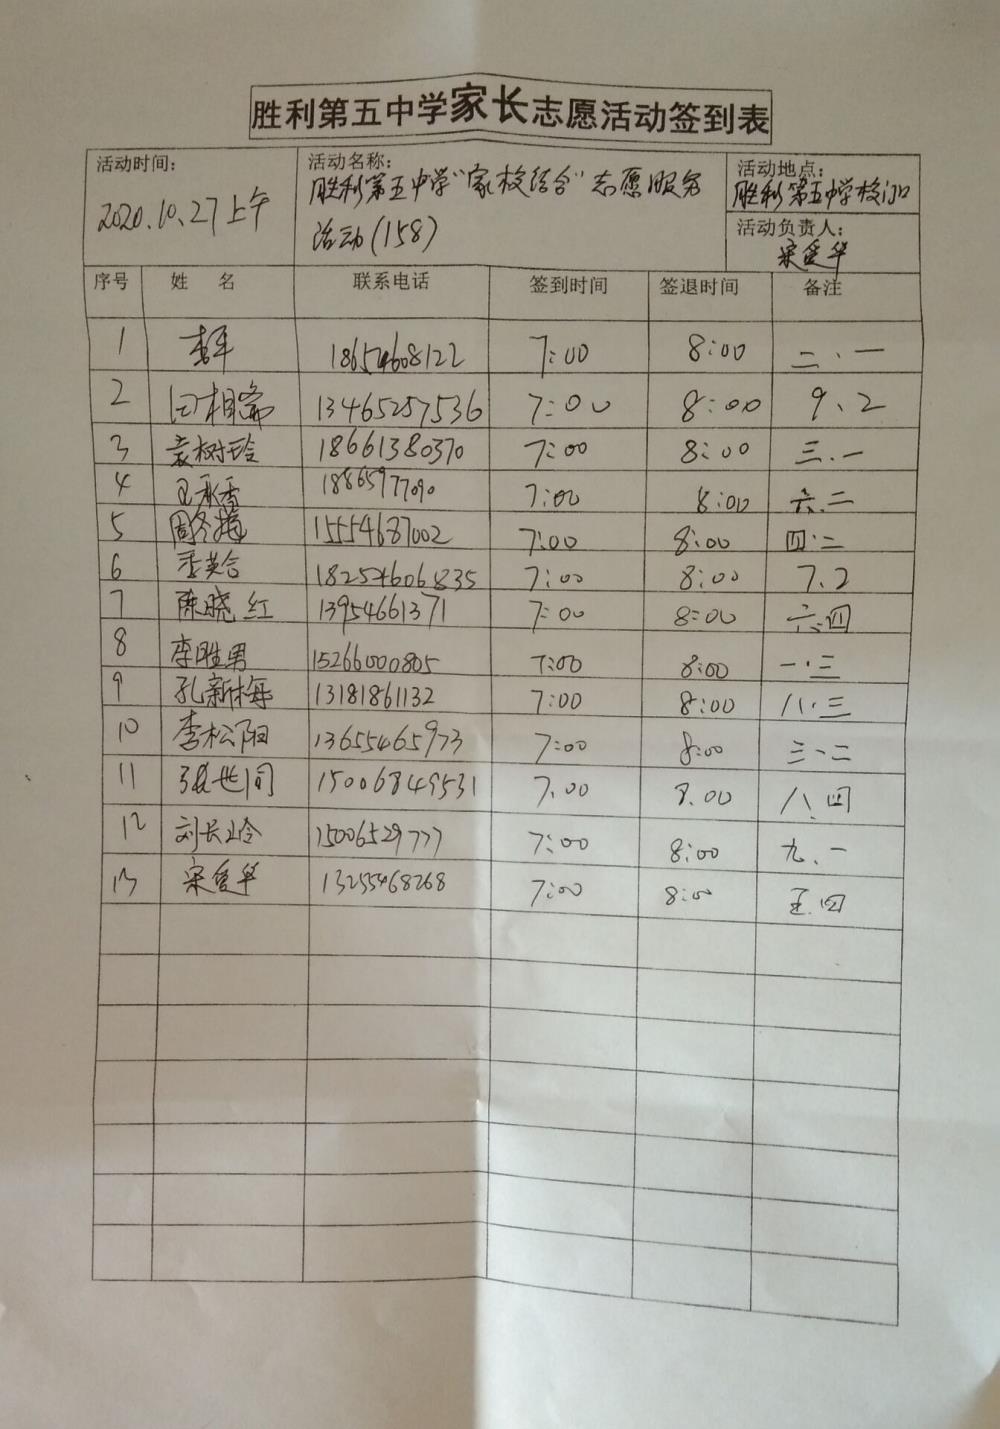 胜利第五中学家长志愿活动签到表
活动时间: 活动名称: 活动地点:
2020.10.27上午 胜利第五中学“家校结合”志愿服务 胜利第五中学校门口
活动(158) 活动负责人:
宋爱华
序号 姓 名 联系电话 签到时间 签退时间 备注
1 李军 18654608122 7:00 8:00 二、一
2 13465257536 7:00 8:00 9、2
3 袁树玲 18661380370 7:00 8:00 三.一
4 王承香 18865977090 7:00 8:00 六.二
5 15554687002 7:00 8:00 四.二
6 季英合 18254606835 7:00 8:00 7.2
7 陈晓红 13954661371 7:00 8:00 六.四
8 李胜男 15266000805 7:00 8:00 一.三
9 孔新梅 13181861132 7:00 8:00 八.三
10 李松阳 13655465973 7:00 8:00 三、二
11 张世问 15006849531 7.00 8.00 八.四
12 刘长玲 15006529777 7:00 8:00 九.一
13 宋爱华 13255468268 7:00 8:00 五.四